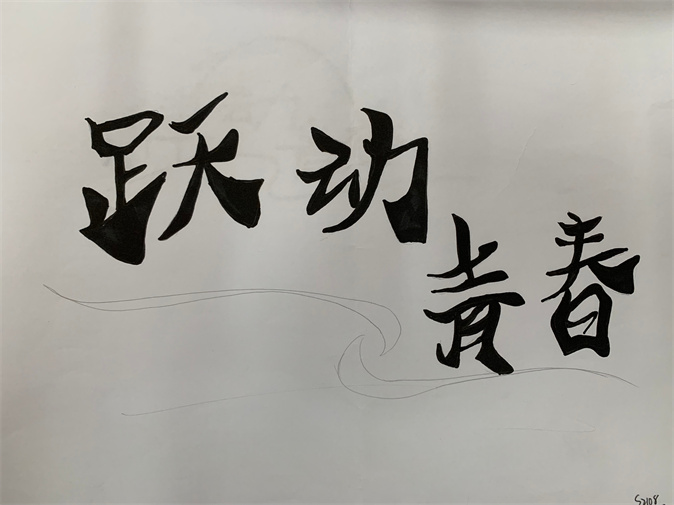 跃动
青春
S2108